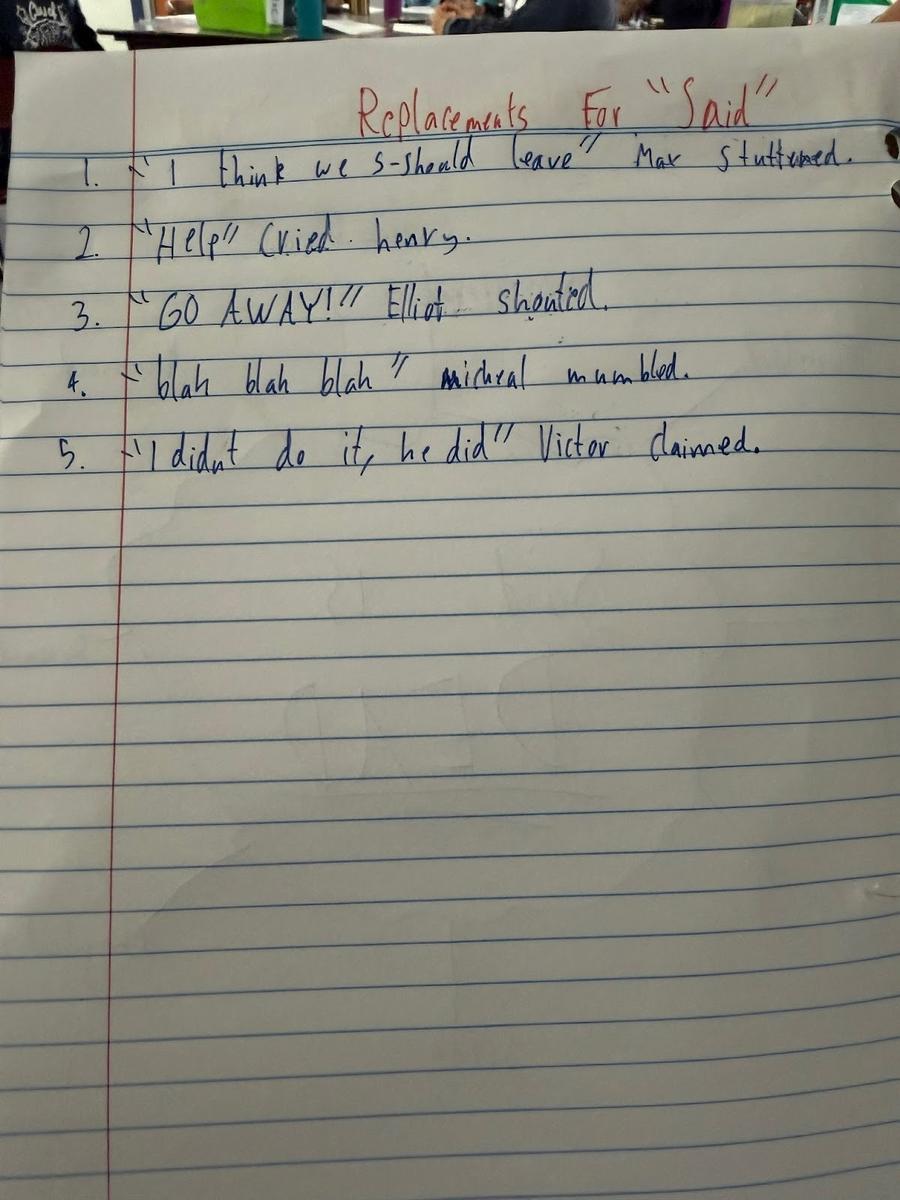 Replacements For "Said"
1. "I think we s-should leave" Max stuttured.
2. "Help" Cried henry.
3. "GO AWAY!" Elliot shouted.
4. "blah blah blah" micheal mumbled.
5. "I didnt do it, he did" Victor claimed.